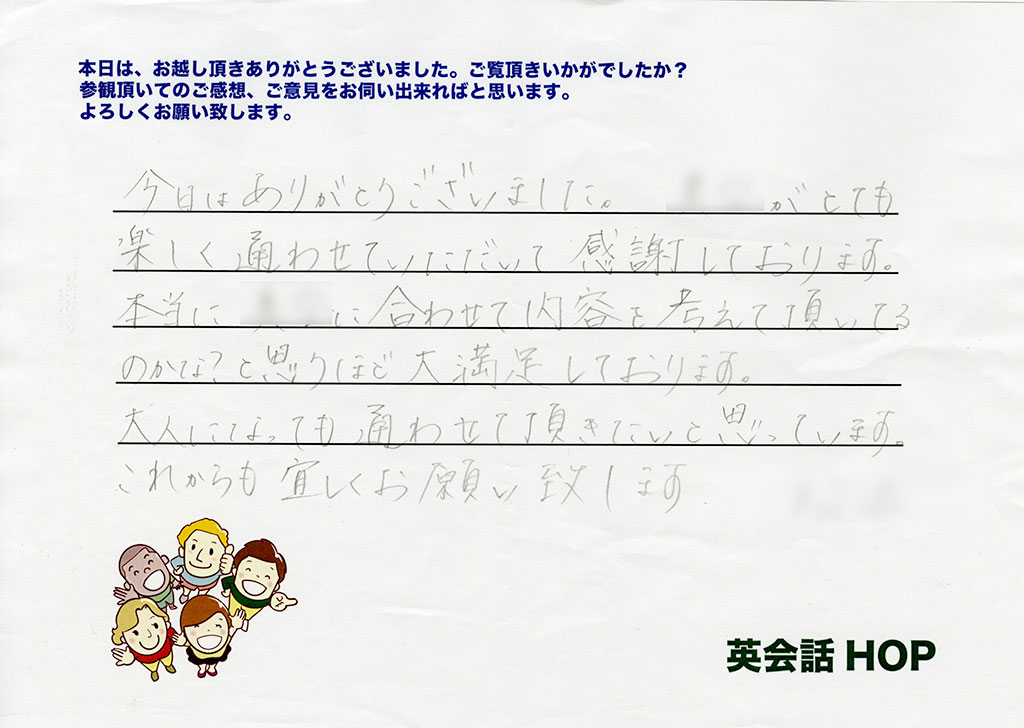 本日は、お越し頂きありがとうございました。ご覧頂きいかがでしたか？
参観頂いてのご感想、ご意見をお伺い出来ればと思います。
よろしくお願い致します。
今日はありがとうございました。 がとても
楽しく通わせていただいて感謝しております。
本当に に合わせて内容を考えて頂いてる
のかな？と思うほど大満足しております。
大人になっても通わせて頂きたいと思っています。
これからも宜しくお願い致します
英会話 HOP